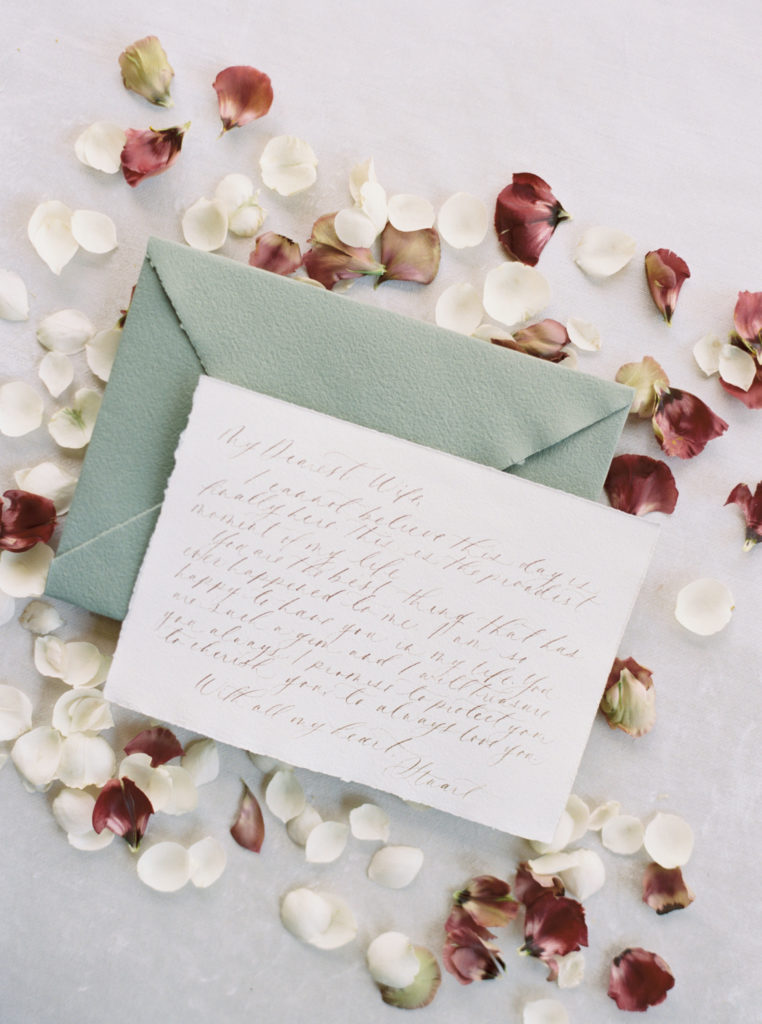 My Dearest Wife
I cannot believe this day is
finally here this is the proudest
moment of my life
You are the best thing that has
ever happened to me I am so
happy to have you in my life You
are such a gem and I will treasure
you always I promise to protect you
to cherish you to always love you
With all my heart
Stuart